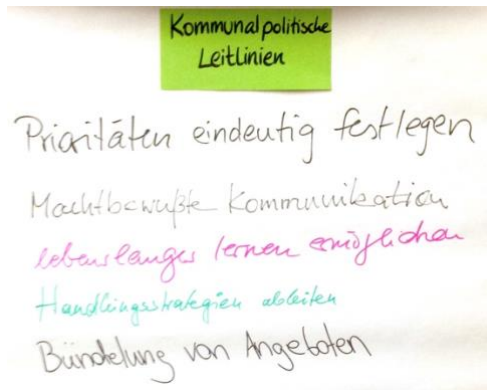 Kommunalpolitische
Leitlinien
Prioritäten eindeutig festlegen
Machtbewußte Kommunikation
lebenslanges lernen ermöglichen
Handlungsstrategien ableiten
Bündelung von Angeboten